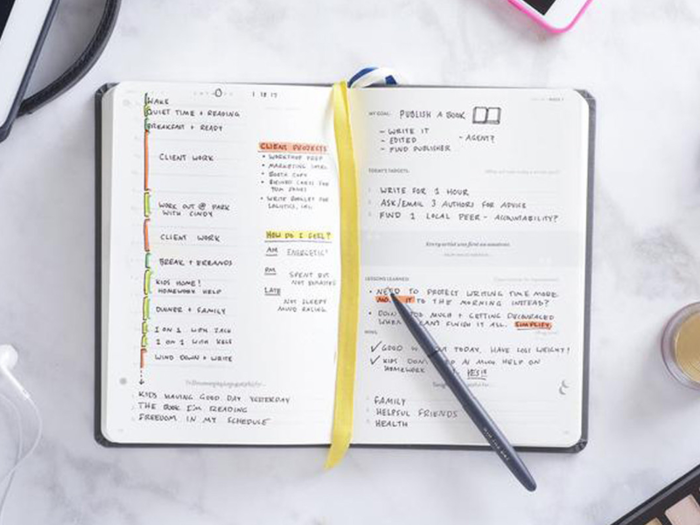 1 18 17
WAKE
QUIET TIME + READING
BREAKFAST + READY
CLIENT WORK
WORK OUT @ PARK
WITH CINDY
CLIENT WORK
BREAK + ERRANDS
KIDS HOME!
HOMEWORK HELP
DINNER + FAMILY
1 ON 1 WITH
1 ON 1 WITH
WIND DOWN + WRITE
CLIENT PROJECTS
• WORKSHOP PREP
• MARKETING
• BOOTH COPY
• CARDS FOR
TOM
• WRITE BOOKLET FOR
LOGISTICS, INC.
HOW DO I FEEL?
AM ENERGETIC!
PM SPENT BUT
NOT
LATE
NOT SLEEPY
MIND RACING
KIDS HAVING GOOD DAY YESTERDAY
THE BOOK I'M READING
FREEDOM IN MY SCHEDULE
MY GOAL: PUBLISH A BOOK
- WRITE IT
- EDITED
- FIND PUBLISHER
- AGENT?
TODAY'S TARGETS:
WRITE FOR 1 HOUR
ASK/EMAIL 3 AUTHORS FOR ADVICE
FIND 1 LOCAL PEER - ACCOUNTABILITY?
Every artist was first an amateur.
LESSONS LEARNED:
• NEED TO PROTECT WRITING TIME MORE.
IT TO THE MORNING INSTEAD?
• MUCH + GETTING DISCOURAGED
WHEN I CANT FINISH IT ALL. SIMPLIFY
WINS:
✓ GOOD TODAY. HAVE LOST WEIGHT!
✓ KIDS MUCH HELP ON
HOMEWORK
FAMILY
HELPFUL FRIENDS
HEALTH